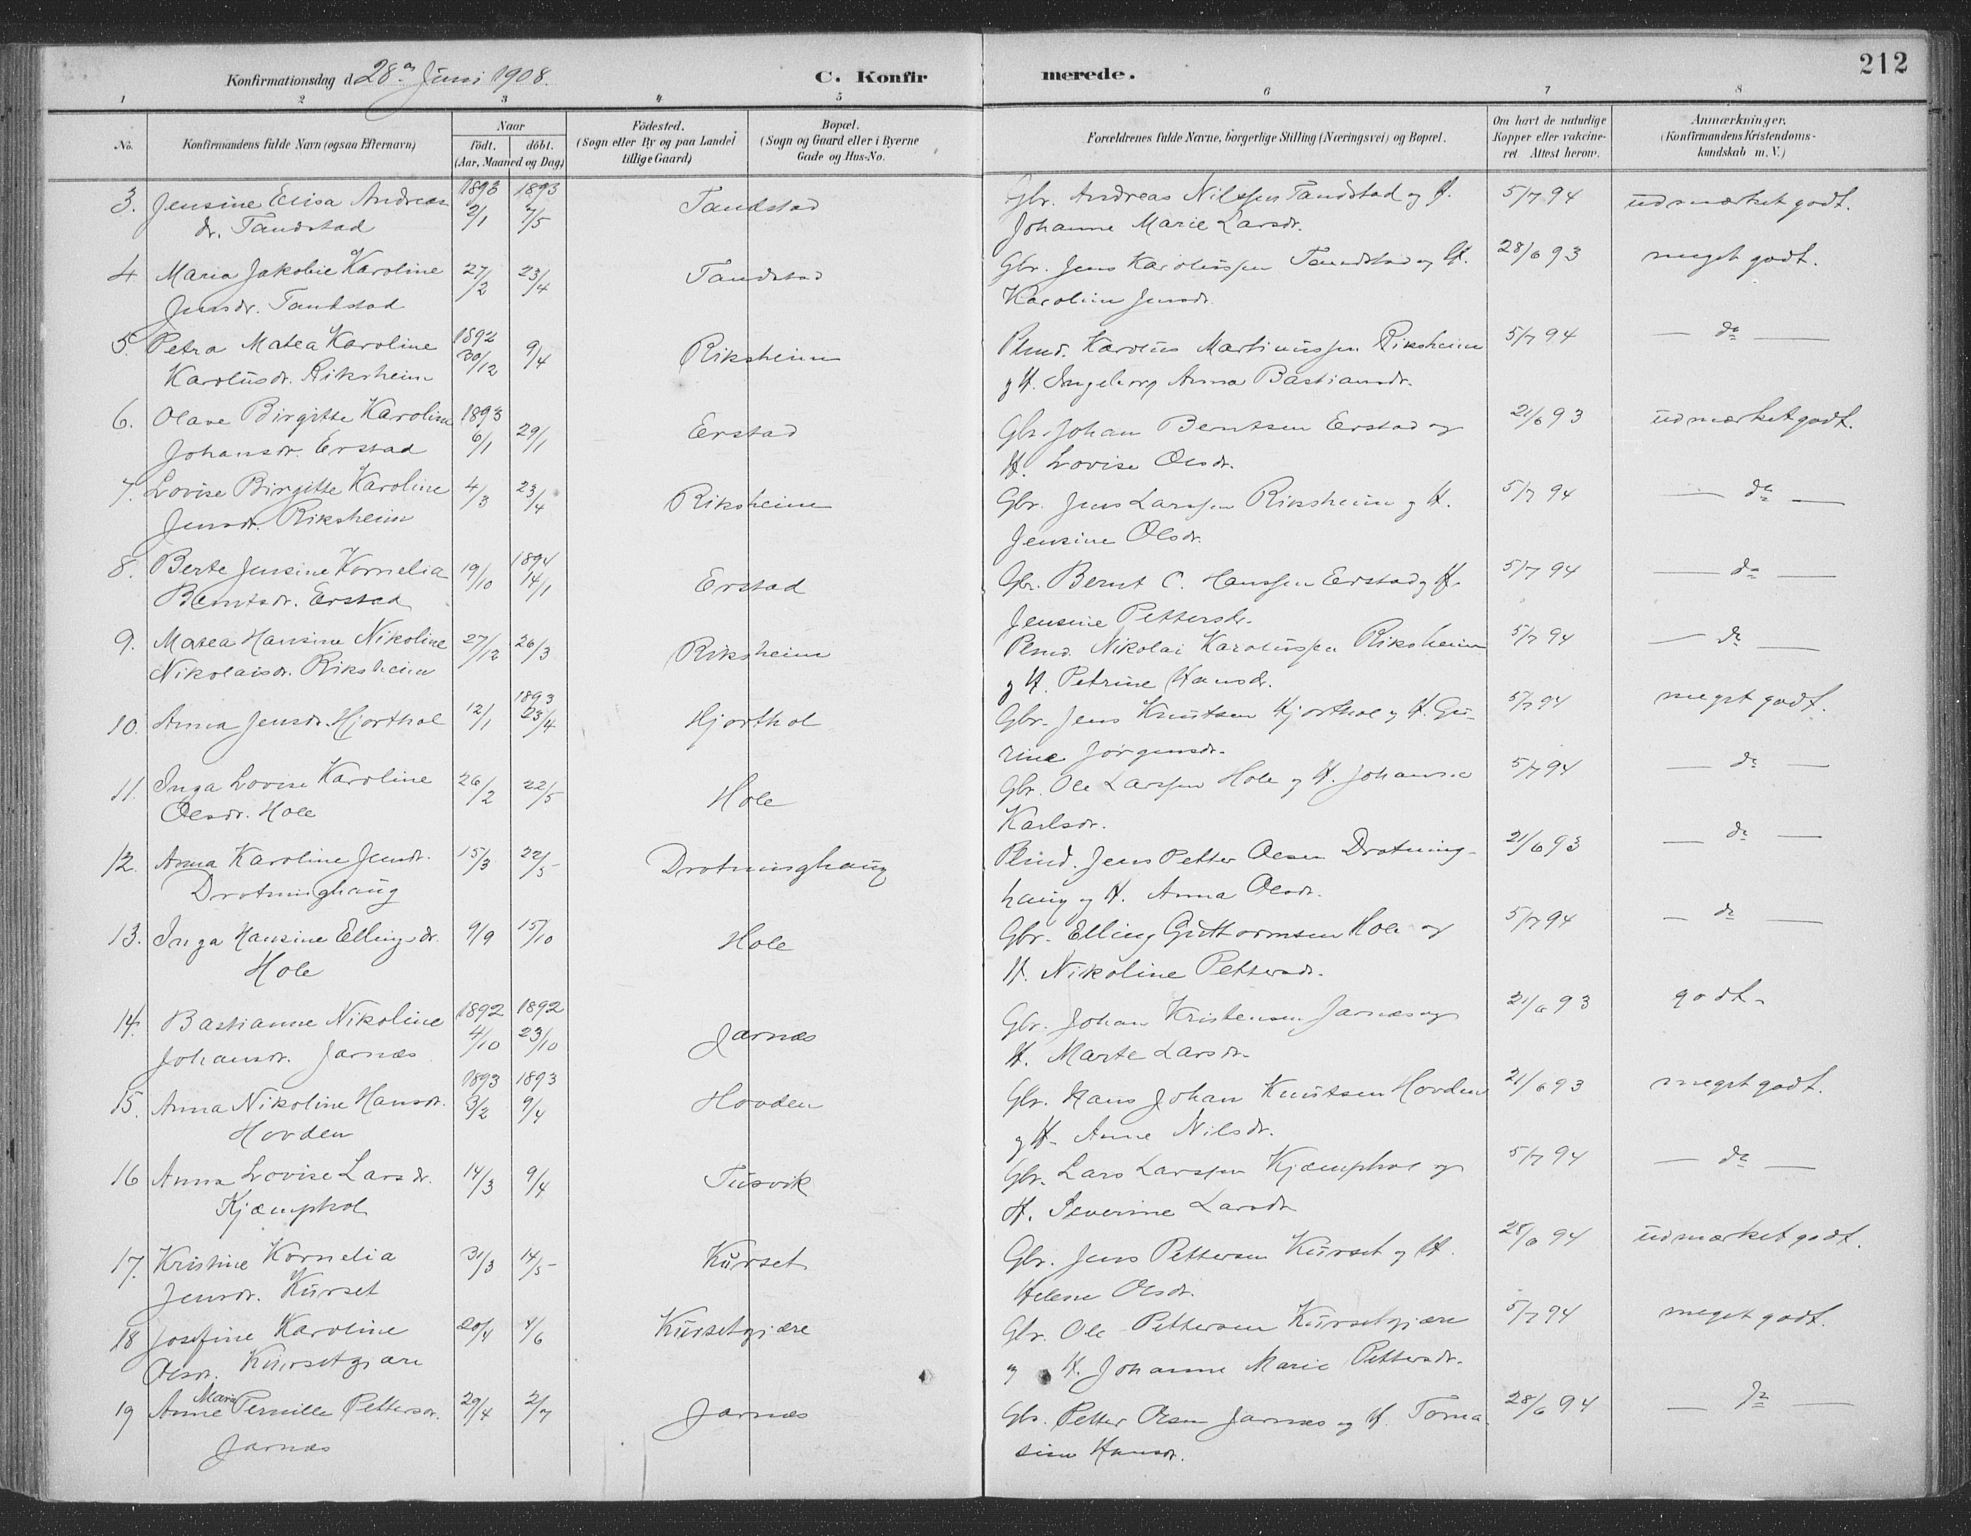 212
Konfirmationsdag d. 28de Juni 1908. C. Konfirmerede.
1 2 3 4 5 6 7 8
No. Konfirmandens fulde Navn (ogsaa Efternavn) Naar født. døbt. (Aar, Maaned og Dag) Fødested. (Sogn eller By og paa Landet tillige Gaard) Bopæl. (Sogn og Gaard eller i Byerne Gade og Hus-No. Forældrenes fulde Navne, borgerlige Stilling (Næringsvei) og Bopæl. Om havt de naturlige Kopper eller vakcineret. Attest herom. Anmærkninger. (Konfirmandens Kristendomskundskab m. V.)
3. Jensine Elisa Andreas 1893 2/1 1893 7/5 Tandstad Gbr. Andreas Nilssen Tandstad og H. 5/7 94 udmærket godt.
dr. Tandstad Johanne Marie Larsdr.
4. Maria Jakobie Karoline 27/2 23/4 Tandstad Gbr. Jens Karolussen Tandstad og H. 28/6 93 meget godt.
Jensdr. Tandstad Karoline Jensdr.
5. Petra Matea Karoline 1892 30/12 9/4 Riksheim Plmd. Karolus Martinussen Riksheim 5/7 94 — do —
Karolusdr. Riksheim og H. Ingeborg Anna Bastiansdr.
6. Olave Birgitte Karoline 1893 6/1 29/1 Erstad Gbr. Johan Berntsen Erstad og 21/6 93 udmærket godt.
Johansdr. Erstad H. Lovise Olsdr.
7. Lovise Birgitte Karoline 4/3 23/4 Riksheim Gbr. Jens Larssen Riksheim og H. 5/7 94 — do —
Jensdr. Riksheim Jensine Olsdr.
8. Berte Jensine Kornelia 19/10 1894 14/1 Erstad Gbr. Bernt C. Hanssen Erstad og H. 5/7 94 — do —
Berntsdr. Erstad Jensine Pettersdr.
9. Matea Hansine Nikoline 27/12 26/3 Riksheim Plmd. Nikolai Karolussen Riksheim 5/7 94 — do —
Nikolaisdr. Riksheim og H. Petrine Hansdr.
10. Anna Jensdr. Hjorthol 12/1 1893 23/4 Hjorthol Gbr. Jens Knutsen Hjorthol og H. Gu- 5/7 94 meget godt.
rine Jørgensdr.
11. Inga Lovise Karoline 26/2 22/5 Hole Gbr. Ole Larssen Hole og H. Johanne 5/7 94 — do —
Olsdr. Hole Karlsdr.
12. Anna Karoline Jensdr. 15/3 22/5 Drotninghaug Plmd. Jens Petter Olsen Drotning- 21/6 93 — do —
Drotninghaug haug og H. Anna Olsdr.
13. Inga Hansine Ellingsdr. 9/9 15/10 Hole Gbr. Elling Guttormsen Hole og 5/7 94 — do —
Hole H. Nikoline Pettersdr.
14. Bastianne Nikoline 1892 4/10 1892 23/10 Jarnæs Gbr. Johan Kristensen Jarnæs og 21/6 93 godt.
Johansdr. Jarnæs H. Marte Larsdr.
15. Anna Nikoline Hansdr. 1893 3/2 1893 9/4 Hovden Gbr. Hans Johan Knutsen Hovden 21/6 93 meget godt.
Hovden og H. Anne Nilsdr.
16 Anna Lovise Larsdr. 14/3 9/4 Tusvik Gbr. Lars Larssen Kjæmphol og 5/7 94 — do —
Kjæmphol H. Severine Larsdr.
17. Kristine Kornelia 31/3 14/5 Kurset Gbr. Jens Pettersen Kurset og H. 28/6 94 udmærket godt.
Jensdr. Kurset Helene Olsdr.
18 Josefine Karoline 20/4 4/6 Kursetgjære Gbr. Ole Pettersen Kursetgjære 5/7 94 meget godt.
Olsdr. Kursetgjære og H. Johanne Marie Pettersdr.
19 Anne Marie Pernille Pettersdr. 29/4 2/7 Jarnæs Gbr. Petter Olsen Jarnæs og H. Toma- 28/6 94 — do —
Jarnæs sine Hansdr.